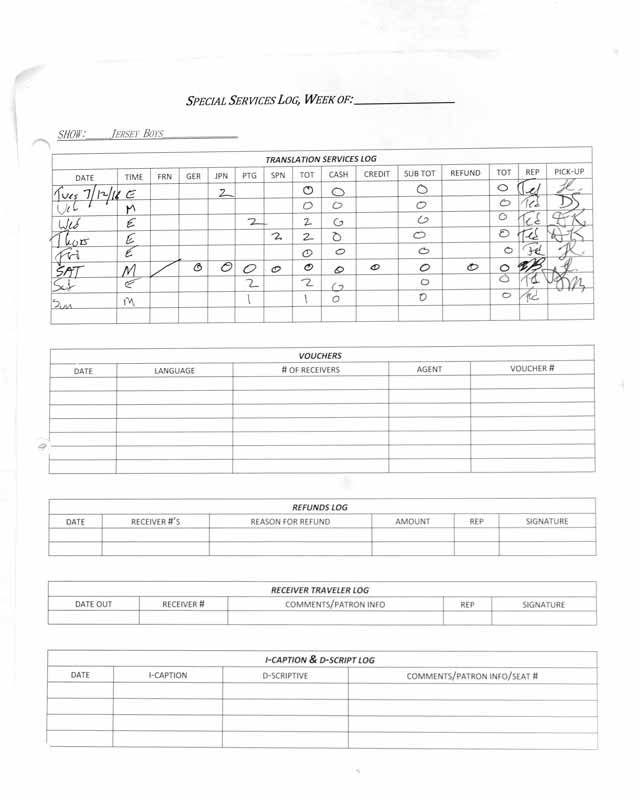 SPECIAL SERVICES LOG, WEEK OF:
SHOW: JERSEY BOYS
TRANSLATION SERVICES LOG
DATE TIME FRN GER JPN PTG SPN TOT CASH CREDIT SUB TOT REFUND TOT REP PICK-UP
Tues 7/12/16 E 2 0 0 0 0 Ted
M 0 0 0 0 Ted DS
Wed E 2 2 0 0 0 Ted DK
Thurs E 2 2 0 0 0 Ted DK
Fri E 0 0 0 0
SAT M 0 0 0 0 0 0 0 0 0 0
Sat E 2 2 0 0 0 Td
Sun M 1 1 0 0 0 Td
VOUCHERS
DATE LANGUAGE # OF RECEIVERS AGENT VOUCHER #
REFUNDS LOG
DATE RECEIVER #'S REASON FOR REFUND AMOUNT REP SIGNATURE
RECEIVER TRAVELER LOG
DATE OUT RECEIVER # COMMENTS/PATRON INFO REP SIGNATURE
I-CAPTION & D-SCRIPT LOG
DATE I-CAPTION D-SCRIPTIVE COMMENTS/PATRON INFO/SEAT #